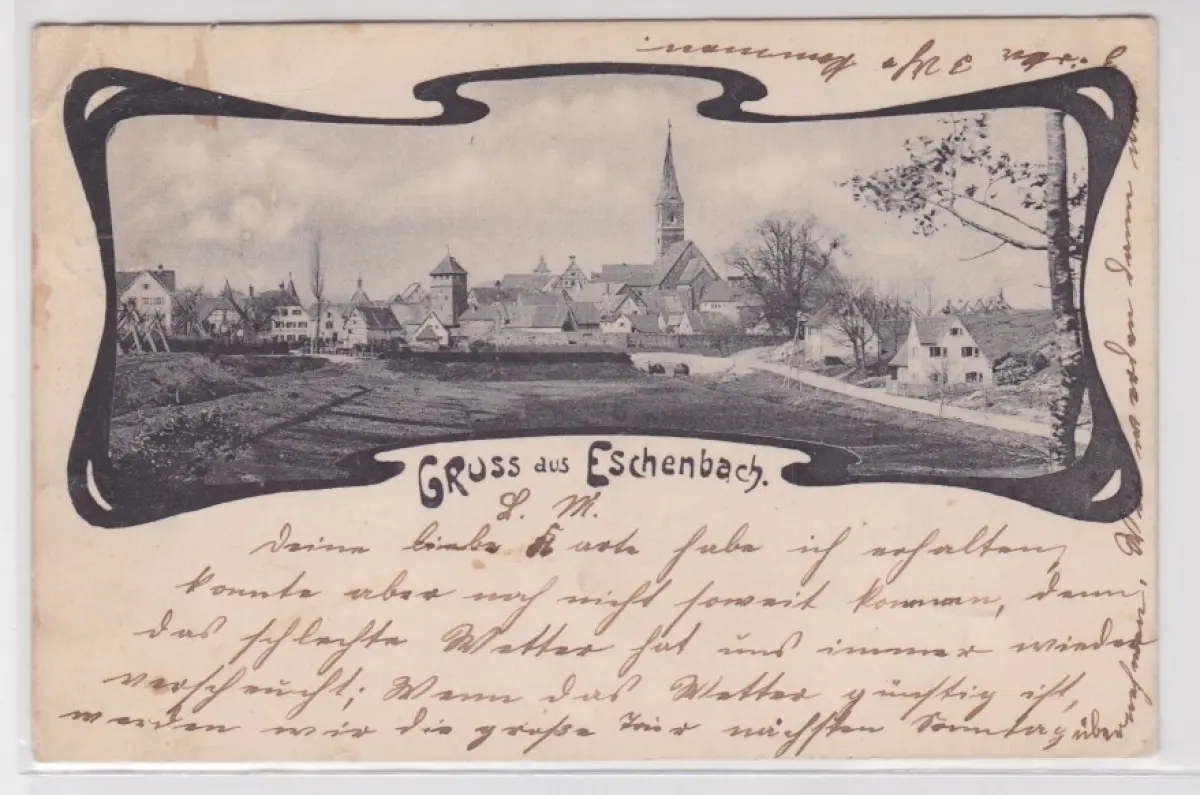 Gruss aus Eschenbach.
L. M.
Deine liebe Karte habe ich erhalten,
konnte aber noch nicht soweit kommen, denn
das schlechte Wetter hat uns immer wieder
verscheucht; Wenn das Wetter günstig ist,
werden wir die große Tour nächsten Sonntag über
nehmen,
kommen